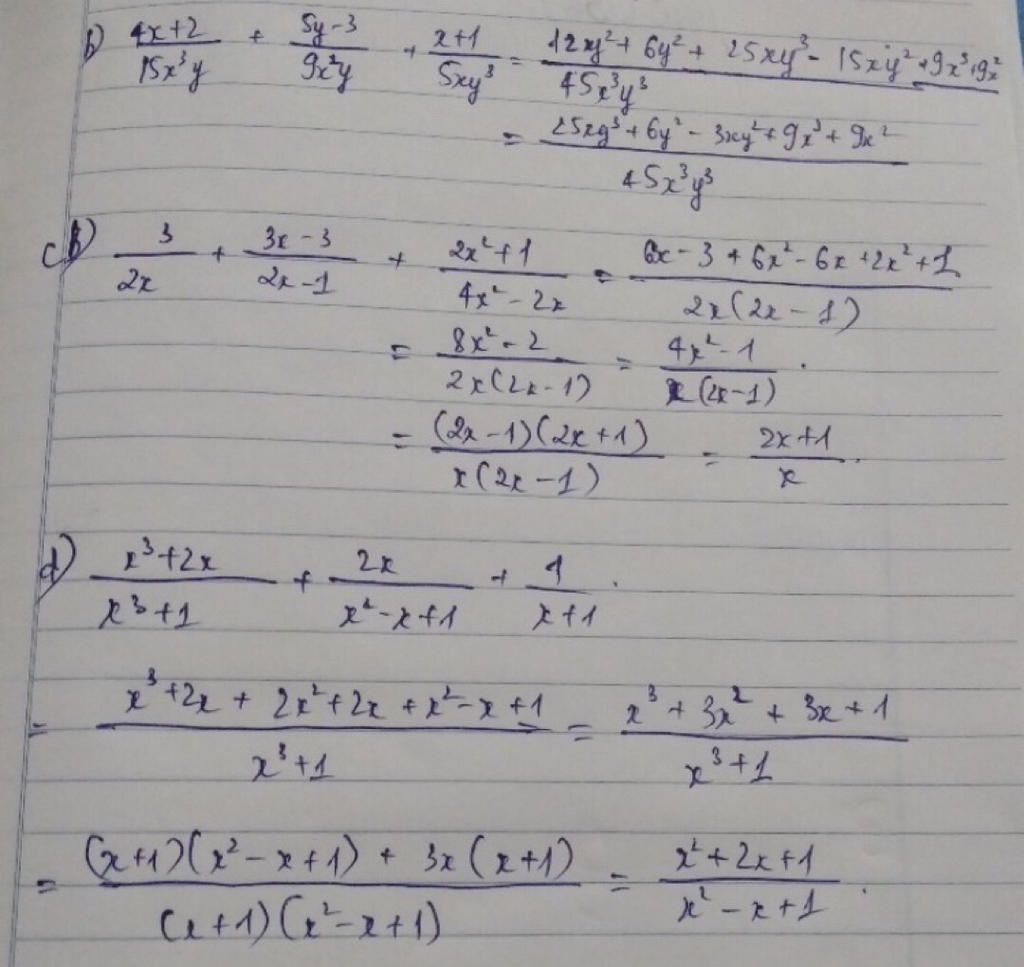 b) (4x+2)/(15x³y) + (5y-3)/(9x²y) + (x+1)/(5xy³) = (12xy²+6y²+25xy³-15xy²+9x³+9x²)/(45x³y³)
= (25xy³+6y²-3xy²+9x³+9x²)/(45x³y³)
c) 3/(2x) + (3x-3)/(2x-1) + (2x²+1)/(4x²-2x) = (6x-3+6x²-6x+2x²+1)/(2x(2x-1))
= (8x²-2)/(2x(2x-1)) = (4x²-1)/(x(2x-1)).
= ((2x-1)(2x+1))/(x(2x-1)) = (2x+1)/x.
d) (x³+2x)/(x³+1) + 2x/(x²-x+1) + 1/(x+1).
= (x³+2x+2x²+2x+x²-x+1)/(x³+1) = (x³+3x²+3x+1)/(x³+1)
= ((x+1)(x²-x+1)+3x(x+1))/((x+1)(x²-x+1)) = (x²+2x+1)/(x²-x+1).